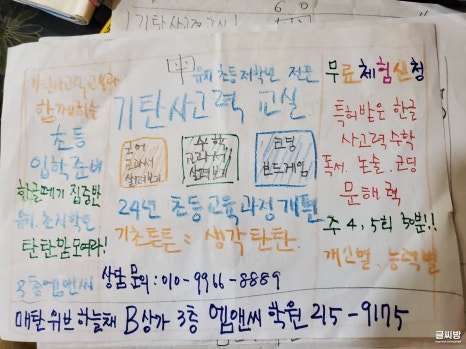 기탄사고력 교실
유치 초등 저학년 전문
기탄사고력 교육과
함께하는
초등
입학준비
한글떼기 집중반
유치. 초저학년
탄탄함 모여라!
3층엠앤씨
국어
교과서
살펴보기
수학
교과서
살펴보기
코딩
보드게임
24년 초등교육과정개편
기초튼튼 = 생각탄탄.
상담문의: 010-9966-8889
무료체험신청
특허받은 한글
사고력수학
독서. 논술. 코딩
문해력
주 4, 5회 50분!!
개인별. 능력별
매탄 위브하늘채 B상가 3층 엠앤씨 학원 215-9175
글씨방